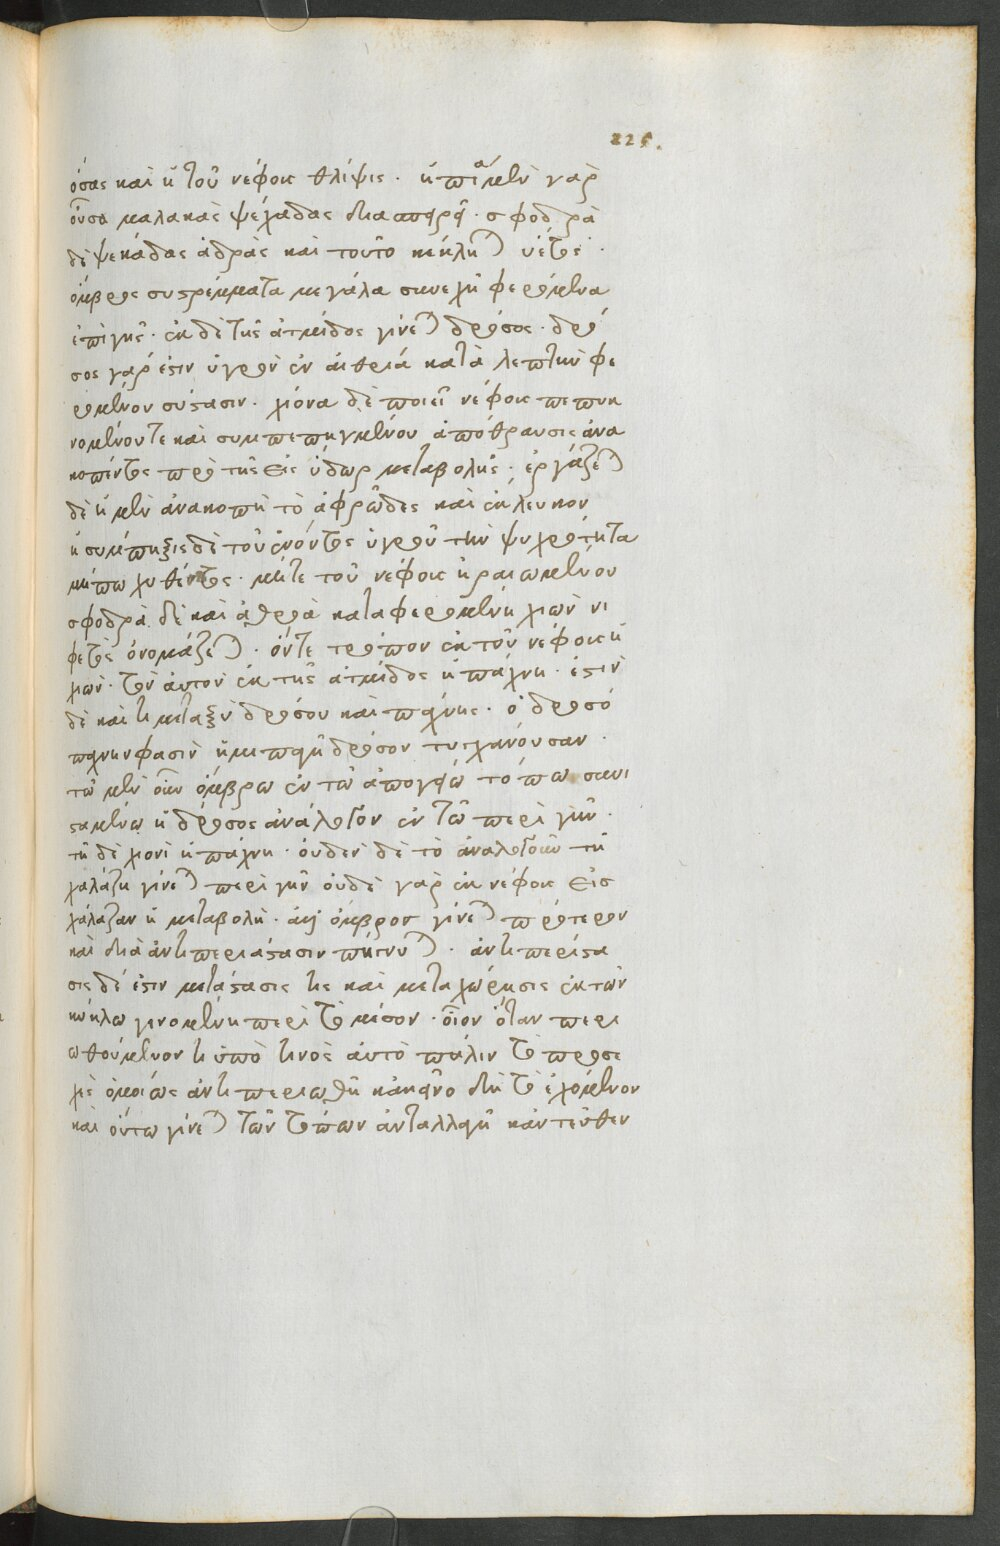 225.
όσας καὶ ἡ τοῦ νέφους θλίψις. ἡ πία μὲν γὰρ
οὖσα μαλακὰς ψεκάδας διασπείρει. σφοδρὰ
δὲ ψεκάδας ἁδρὰς καὶ τοῦτο κέκληται ὑετὸς.
ὄμβρος συστρέμματα μεγάλα συνεχῆ φερόμενα
ἐπὶ γῆς. ἐκ δὲ τῆς ἀτμίδος γίνεται δρόσος. δρό
σος γάρ ἐστιν ὑγρὸν ἐν αἰθρία κατὰ λεπτὴν φε
ρόμενον σύστασιν. χιόνα δὲ ποιεῖ νέφους πεπυκ
νομένου τε καὶ συμπεπηγμένου ἀπόθραυσις ἀνα
κοπέντος πρὸ τῆς εἰς ὕδωρ μεταβολῆς. ἐργάζεται
δὲ ἡ μὲν ἀνακοπὴ τὸ ἀφρῶδες καὶ ἔκλευκον
ἡ σύμπηξις δὲ τοῦ ἐνόντος ὑγροῦ τὴν ψυχρότητα
μήπω χυθέντος. μήτε τοῦ νέφους ἠραιωμένου
σφοδρὰ δὲ καὶ ἀθρόα καταφερομένη χιὼν νι
φετὸς ὀνομάζεται. ὅντε τρόπον ἐκ τοῦ νέφους ἡ
χιὼν. τὸν αὐτὸν ἐκ τῆς ἀτμίδος ἡ πάχνη. ἔστιν
δὲ καὶ τι μεταξὺ δρόσου καὶ πάχνης. ὁ δροσό
παχνην φασὶν ἡμιπαγῆ δρόσον τυγχάνουσαν.
τῶ μὲν οὖν ὄμβρω ἐν τῶ ἀπογείω τόπω συνι
σταμένω ἡ δρόσος ἀνάλογον ἐν τῶ περὶ γῆν.
τῆ δὲ χιόνι ἡ πάχνη. οὐδὲν δὲ τὸ ἀναλογοῦν τῆ
χαλάζη γίνεται περὶ γῆν οὐδὲ γὰρ ἐκ νέφους εἰς
χάλαζαν ἡ μεταβολὴ. ἀλλ' ὄμβρος γίνεται πρότερον
καὶ διὰ ἀντιπεριάστασιν πήγνυται. ἀντιπερίστα
σις δέ ἐστιν μετάστασις τις καὶ μεταχώρησις ἐκ τῶν
κύκλω γινομένη περὶ τὸ μέσον. οἷον ὅταν περι
ωθούμενον τι ὑπὸ τινὸς αὐτὸ πάλιν τὸ προσε
χὲς ὁμοίως ἀντιπεριωθῆ κἀκεῖνο δὴ τὸ ἐχόμενον
καὶ οὕτω γίνεται τῶν τόπων ἀνταλλαγῆ κἀντεῦθεν